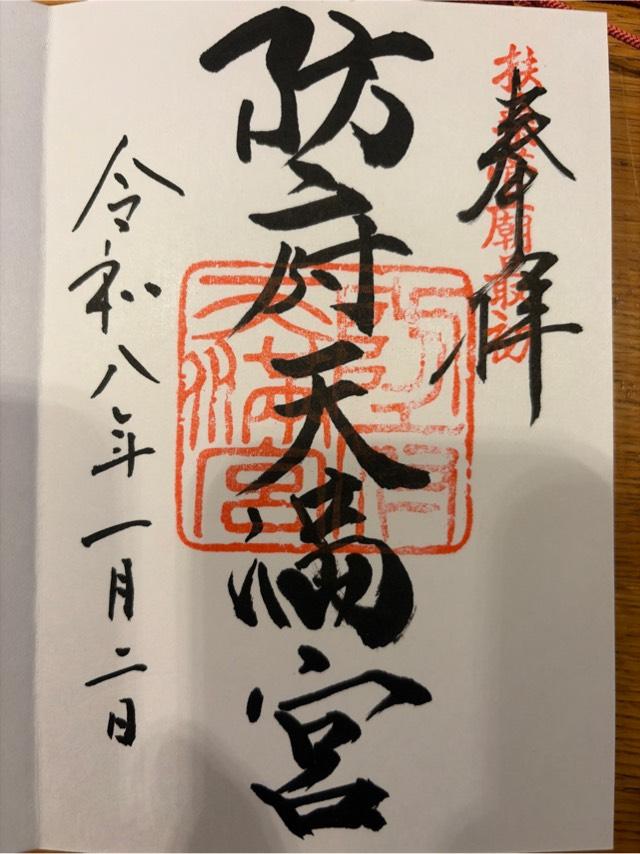 奉拝
扶桑菅廟最初
防府天満宮
防府天満宮
令和八年一月二日